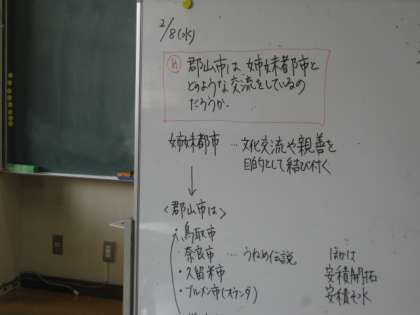 2/8(水)
郡山市は、姉妹都市と
どのような交流をしているの
だろうか。
姉妹都市 …文化交流や親善を
目的として結び付く
↓
〈郡山市は〉
・鳥取市
・奈良市 … うねめ伝説 ほかは
・久留米市 安積開拓
・ブルメン市(オランダ) 安積そ水